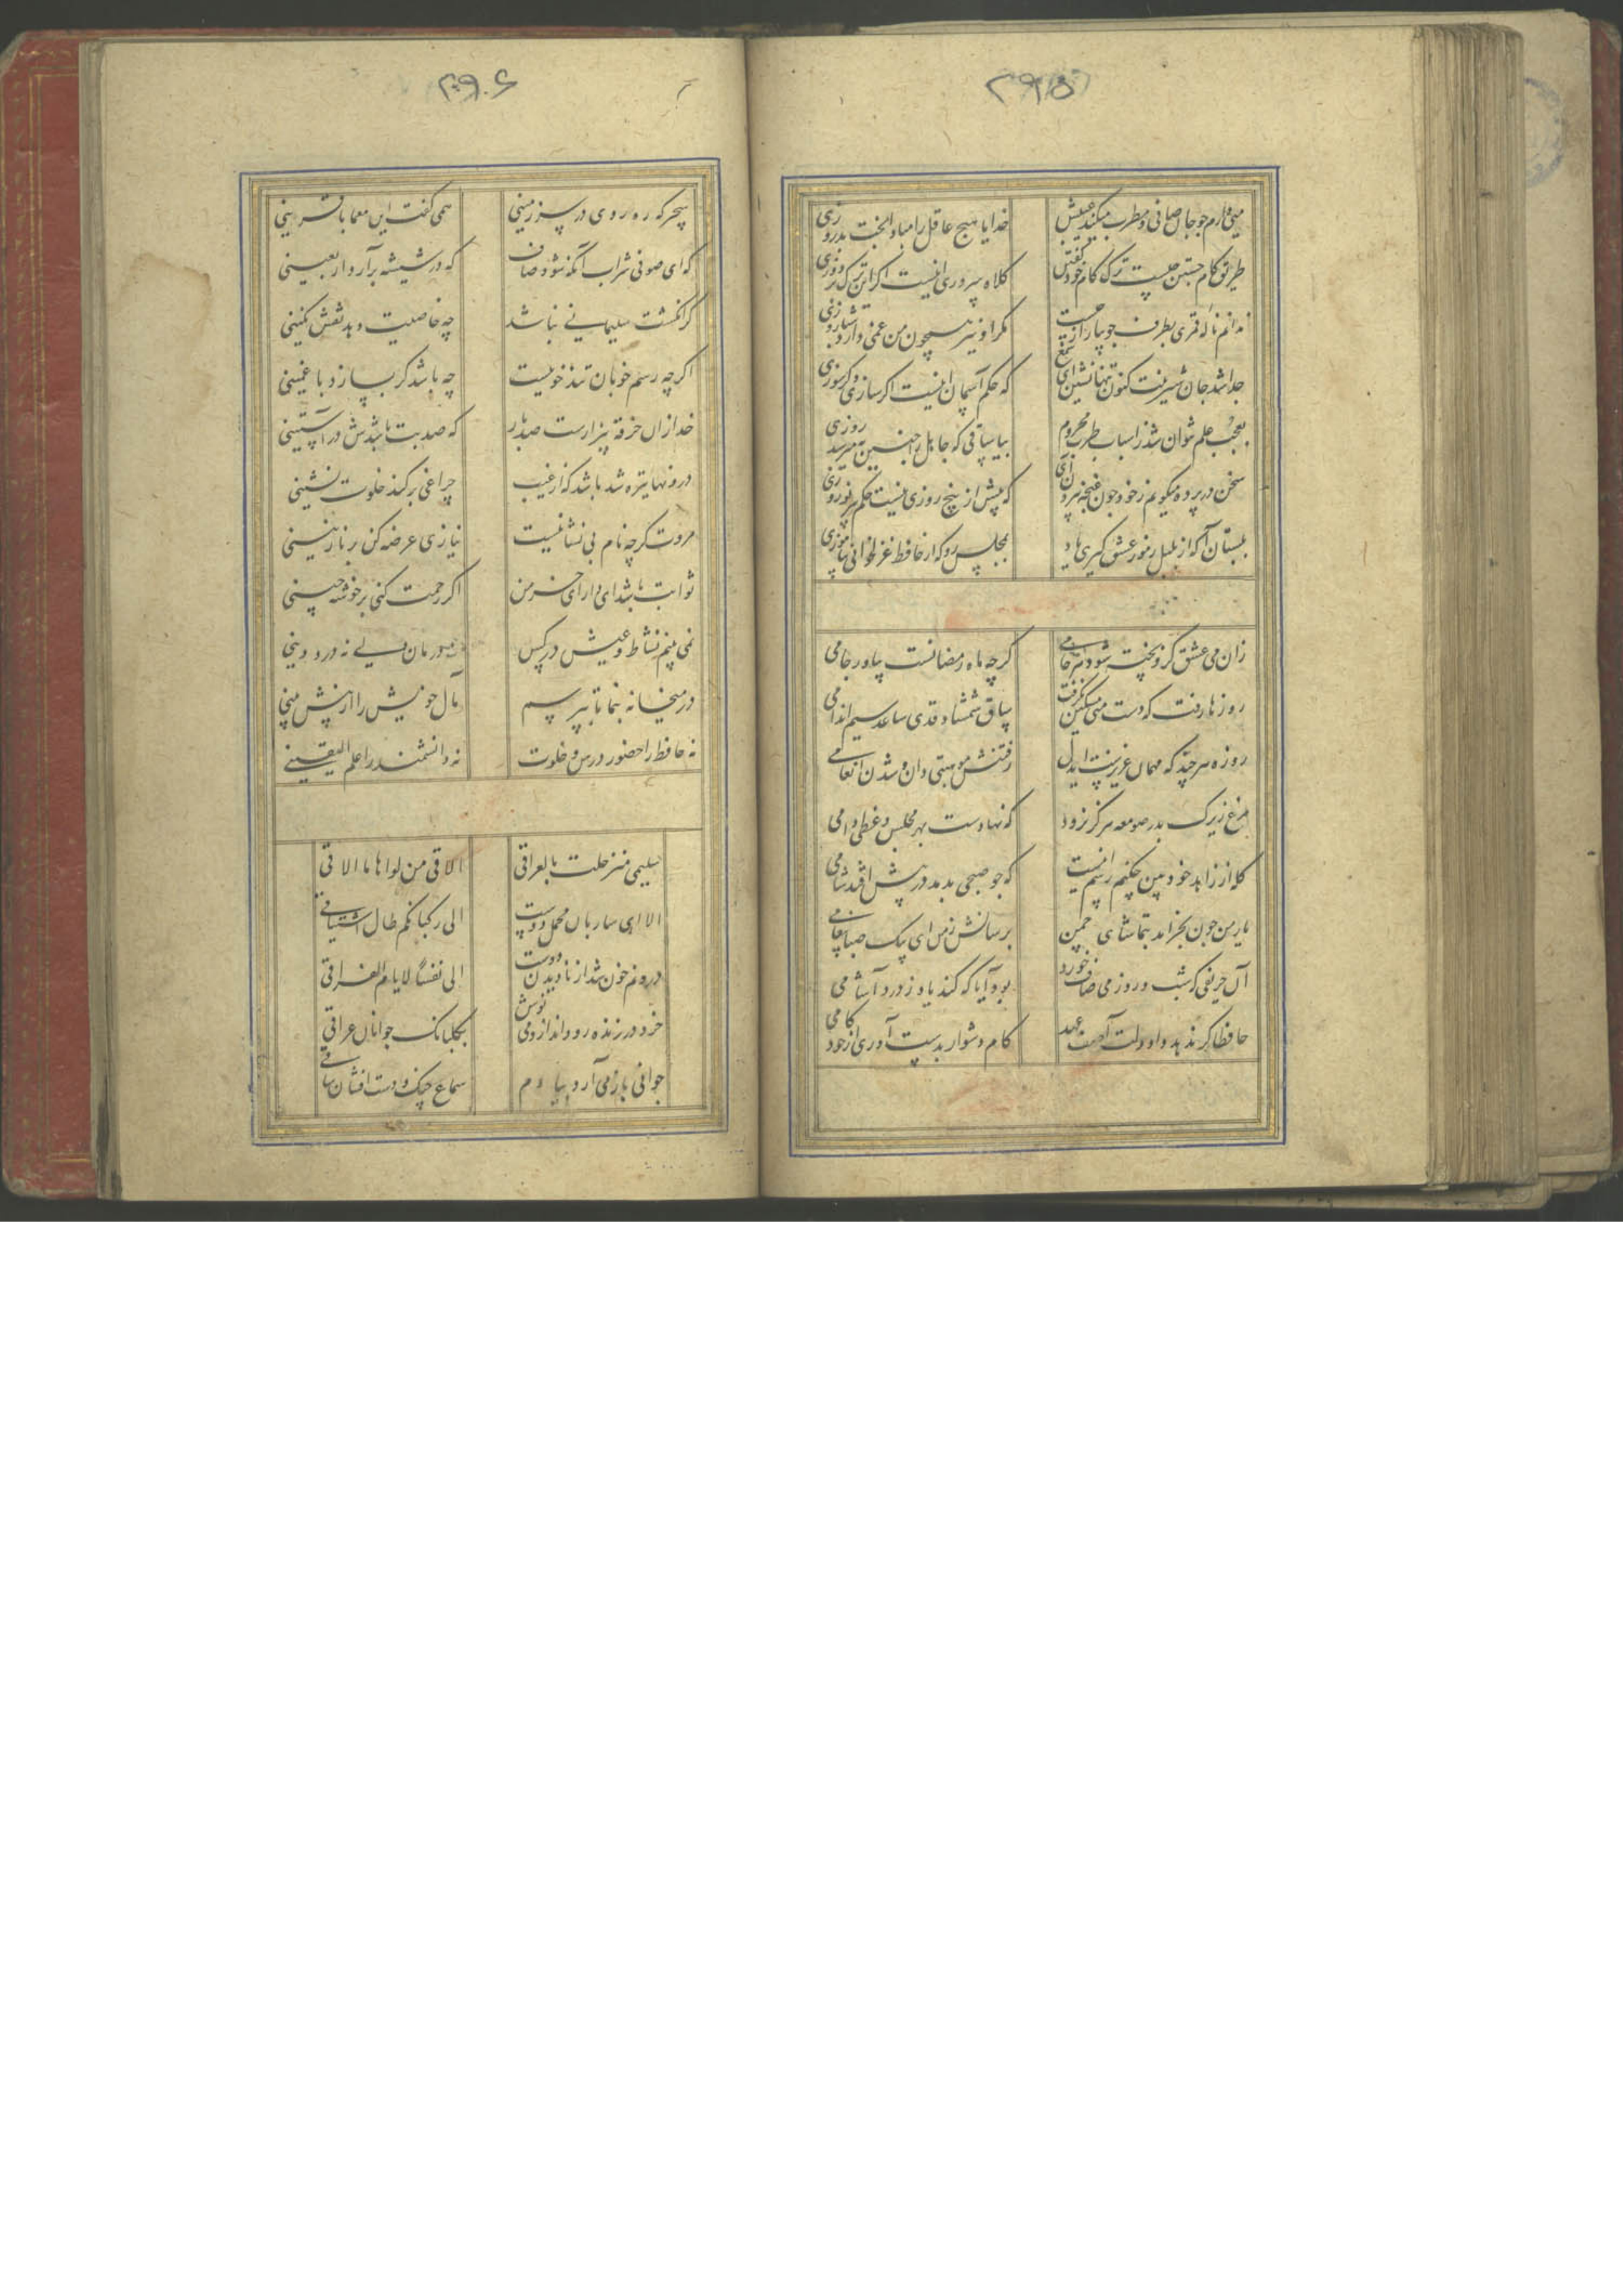 ۲۹۵
میی دارم چو جان صافی و مطرب میکند عیبش خدایا هیچ عاقل را مبادا بخت بد روزی
طریق کام جستن چیست ترک کام خود گفتن کلاه سروری اینست اگر این ترک بردوزی
ندانم ناله قمری بطرف جویبار از چیست مگر او نیز همچون من غمی دارد شبانروزی
جدا شد جان شیرینت کنون تنها نشین ای شمع که حکم آسمان اینست اگر سازی و گر سوزی
بعجب علم نتوان شد ز اسباب طرب محروم بیا ساقی که جاهل را هنیتر میرسد روزی
سخن در پرده میگویم ز خود چون غنچه بیرون آی که بیش از پنج روزی نیست حکم میر نوروزی
ببستان آ که از بلبل رموز عشق گیری یاد بمجلس رو که از حافظ غزلخوانی بیاموزی
زان می عشق کزو پخته شود هر خامی گرچه ماه رمضانست بیاور جامی
روزها رفت که دست من مسکین نگرفت ساق شمشاد قدی ساعد سیم اندامی
روزه هر چند که مهمان عزیزست ایدل رفتنش موهبتی دان و شدن انعامی
مرغ زیرک بدر صومعه هرگز نرود که نهادست بهر مجلس وعظی دامی
گله از زاهد خودبین چکنم رسم اینست که چو صبحی بدمد در پیش افتد شامی
یار من چون بخرامد بتماشای چمن برسانش ز من ای پیک صبا پیغامی
آن حریفی که شب و روز می صاف خورد بود آیا که کند یاد ز درد آشامی
حافظا گر ندهد داد دلت آصف عهد کام دشوار بدست آوری از خود کامی
۲۹۰۶
سحرگه رهروی در سرزمینی همی گفت این معما با قرینی
که ای صوفی شراب آنگه شود صاف که در شیشه برآرد اربعینی
گر انگشت سلیمانی نباشد چه خاصیت دهد نقش نگینی
اگرچه رسم خوبان تندخوییست چه باشد گر بسازد با غمینی
خدا زان خرقه بیزارست صد بار که صد بت باشدش در آستینی
درونها تیره شد باشد که از غیب چراغی برکند خلوت نشینی
مروت گرچه نام بی نشانیست نیازی عرضه کن بر نازنینی
ثوابت باشد ای دارای خرمن اگر رحمت کنی بر خوشه چینی
نمی بینم نشاط و عیش در کس نه درمان دلی نه درد دینی
در میخانه بنما تا بپرسم مآل خویش را از پیش بینی
نه حافظ را حضور درس و خلوت نه دانشمند را علم الیقینی
سلیمی منذ حلت بالعراقی الاقی من نواها ما الاقی
الا ای ساربان محمل دوست الی رکبانکم طال اشتیاقی
درونم خون شد از نادیدن دوست الی نفساً لایام الفراقی
خرد در زنده رود انداز و می نوش بگلبانگ جوانان عراقی
جوانی باز می آرد بیادم سماع چنگ و دست افشان ساقی